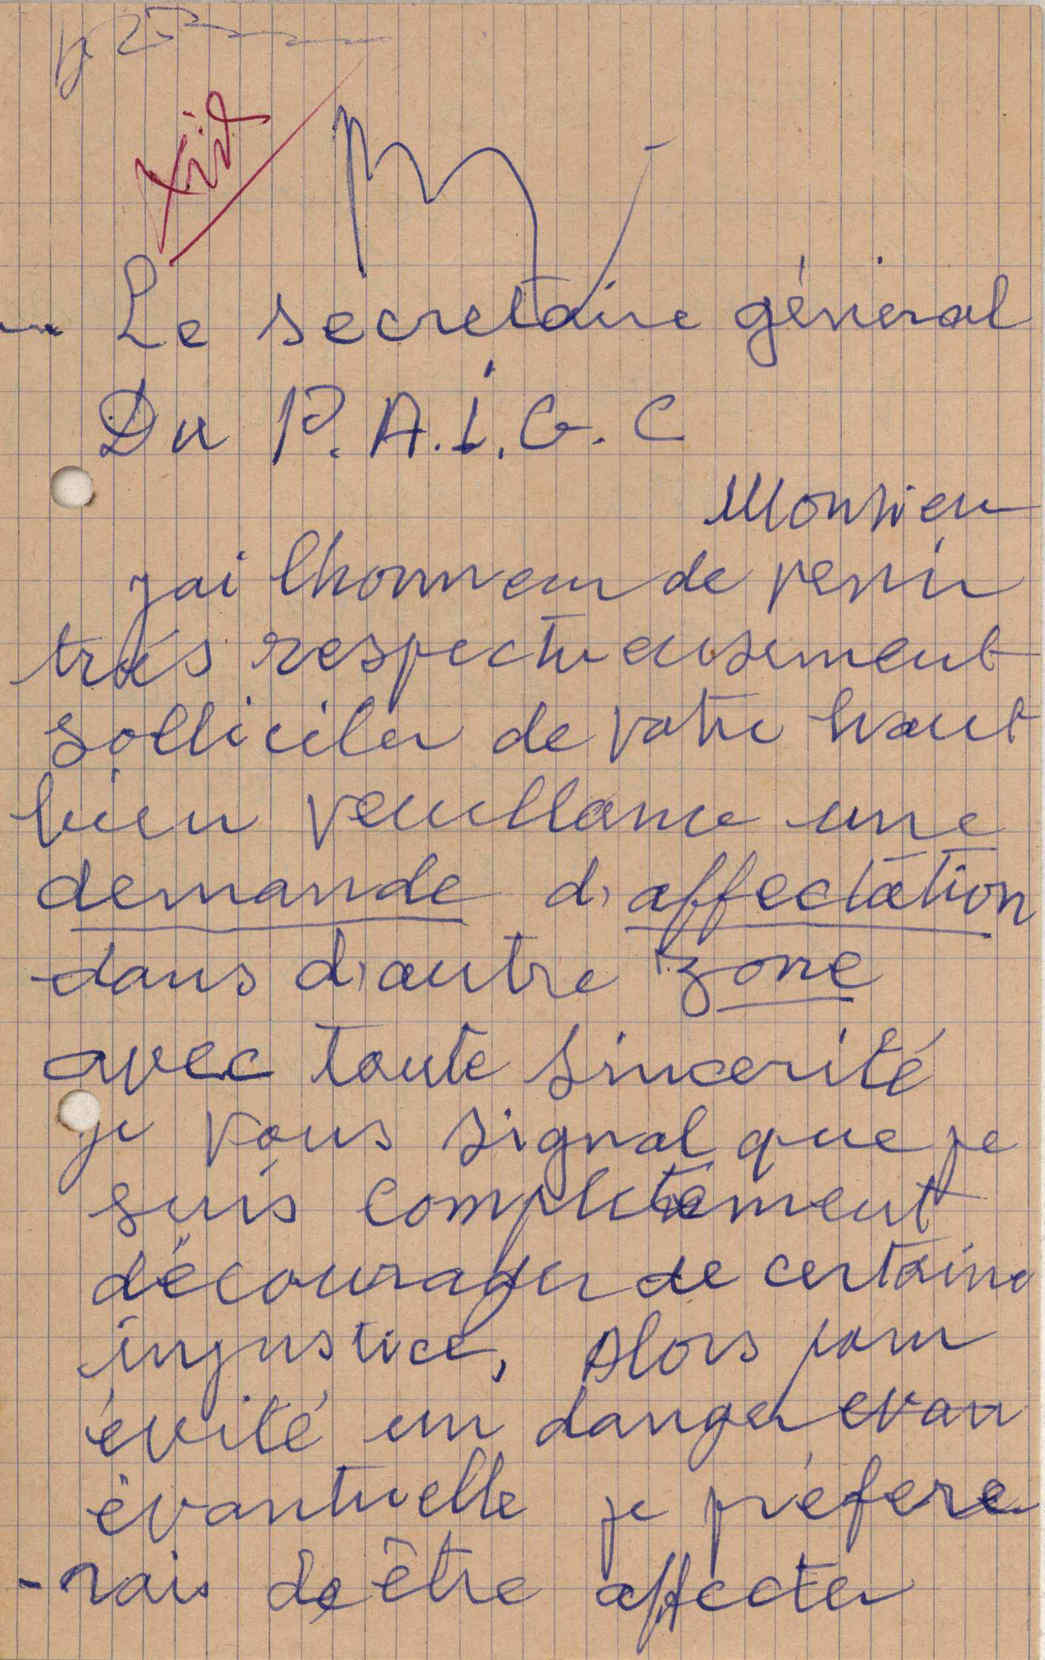 Le secretaire général
Du P.A.I.G.C
Monsieu
jai lhonneur de venir
trés respectueusement
solliciter de votre haut
bien veuillance une
demande d'affectation
dans d'autre zone
avec toute sincerité
je vous signal que je
suis completement
décourager de certaine
injustice, Alors pour
évité un danger evan
évantuelle je préfere
-rais de être affecter